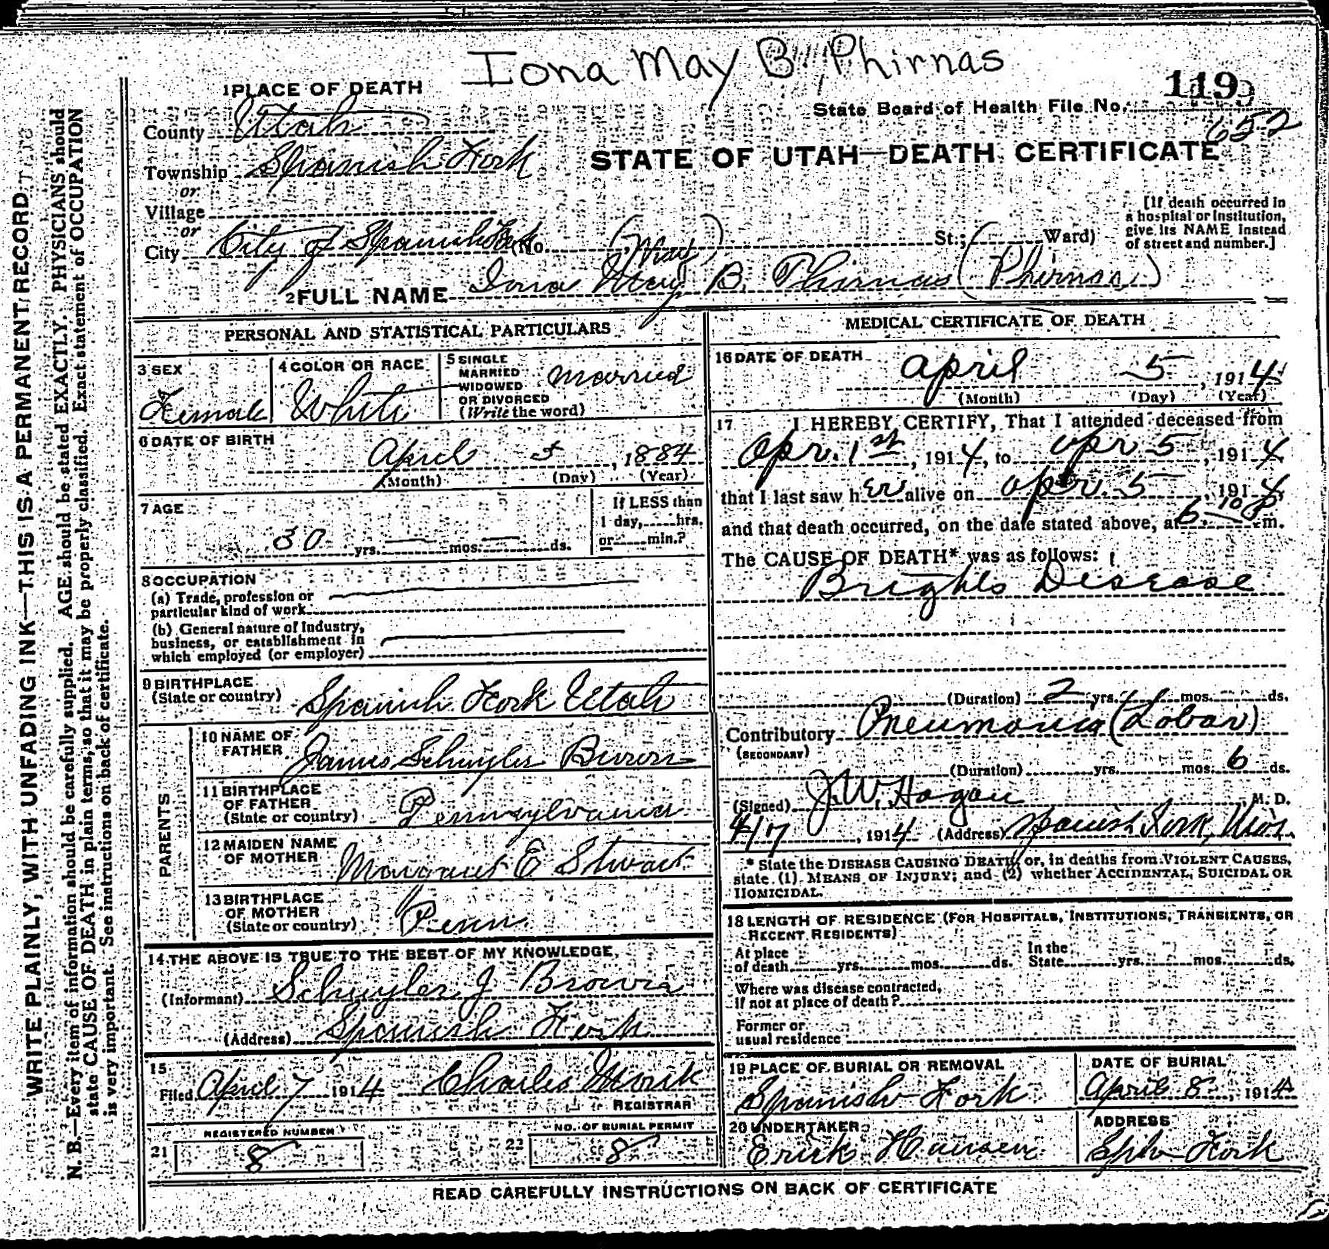 Iona May B. Phirnas
1 PLACE OF DEATH
119
State Board of Health File No.
652
County Utah
Township Spanish Fork
STATE OF UTAH—DEATH CERTIFICATE
or
Village
or
City City of Spanish Fork (No. St.; Ward)
[If death occurred in
a hospital or institution,
give its NAME instead
of street and number.]
(May)
2 FULL NAME Iona May B. Phirnas (Phirnas)
PERSONAL AND STATISTICAL PARTICULARS
3 SEX
Female
4 COLOR OR RACE
White
5 SINGLE
MARRIED
WIDOWED
OR DIVORCED
(Write the word)
Married
6 DATE OF BIRTH
April 5, 1884
(Month) (Day) (Year)
7 AGE
30 yrs. — mos. — ds.
If LESS than
1 day, hrs.
or min.?
8 OCCUPATION
(a) Trade, profession or
particular kind of work
(b) General nature of industry,
business, or establishment in
which employed (or employer)
9 BIRTHPLACE
(State or country) Spanish Fork Utah
PARENTS
10 NAME OF
FATHER James Schuyler Brown
11 BIRTHPLACE
OF FATHER
(State or country) Pennsylvania
12 MAIDEN NAME
OF MOTHER Margaret E Stewart
13 BIRTHPLACE
OF MOTHER
(State or country) Penn
14 THE ABOVE IS TRUE TO THE BEST OF MY KNOWLEDGE,
(Informant) Schuyler J Brown
(Address) Spanish Fork
15
Filed April 7 1914 Charles Monk
REGISTRAR
REGISTERED NUMBER
21 8
NO. OF BURIAL PERMIT
22 8
MEDICAL CERTIFICATE OF DEATH
16 DATE OF DEATH
April 5, 1914
(Month) (Day) (Year)
17 I HEREBY CERTIFY, That I attended deceased from
Apr. 1st, 1914, to Apr 5, 1914
that I last saw her alive on Apr. 5, 1914
and that death occurred, on the date stated above, at 6-10 P m.
The CAUSE OF DEATH* was as follows:
Brights Disease
(Duration) 2 yrs. mos. ds.
Contributory Pneumonia (Lobar)
(SECONDARY)
(Duration) yrs. mos. 6 ds.
(Signed) J.W. Hagan M. D.
4/7, 1914 (Address) Spanish Fork,
* State the DISEASE CAUSING DEATH, or, in deaths from VIOLENT CAUSES,
state (1) MEANS OF INJURY; and (2) whether ACCIDENTAL, SUICIDAL OR
HOMICIDAL.
18 LENGTH OF RESIDENCE (FOR HOSPITALS, INSTITUTIONS, TRANSIENTS, OR
RECENT RESIDENTS)
At place
of death yrs. mos. ds.
In the
State yrs. mos. ds.
Where was disease contracted,
if not at place of death?
Former or
usual residence
19 PLACE OF BURIAL OR REMOVAL
Spanish Fork
DATE OF BURIAL
April 8, 1914
20 UNDERTAKER
Erick Hansen
ADDRESS
Fork
READ CAREFULLY INSTRUCTIONS ON BACK OF CERTIFICATE
WRITE PLAINLY, WITH UNFADING INK—THIS IS A PERMANENT RECORD
N. B.—Every item of information should be carefully supplied. AGE should be stated EXACTLY. PHYSICIANS should
state CAUSE OF DEATH in plain terms, so that it may be properly classified. Exact statement of OCCUPATION
is very important. See instructions on back of certificate.